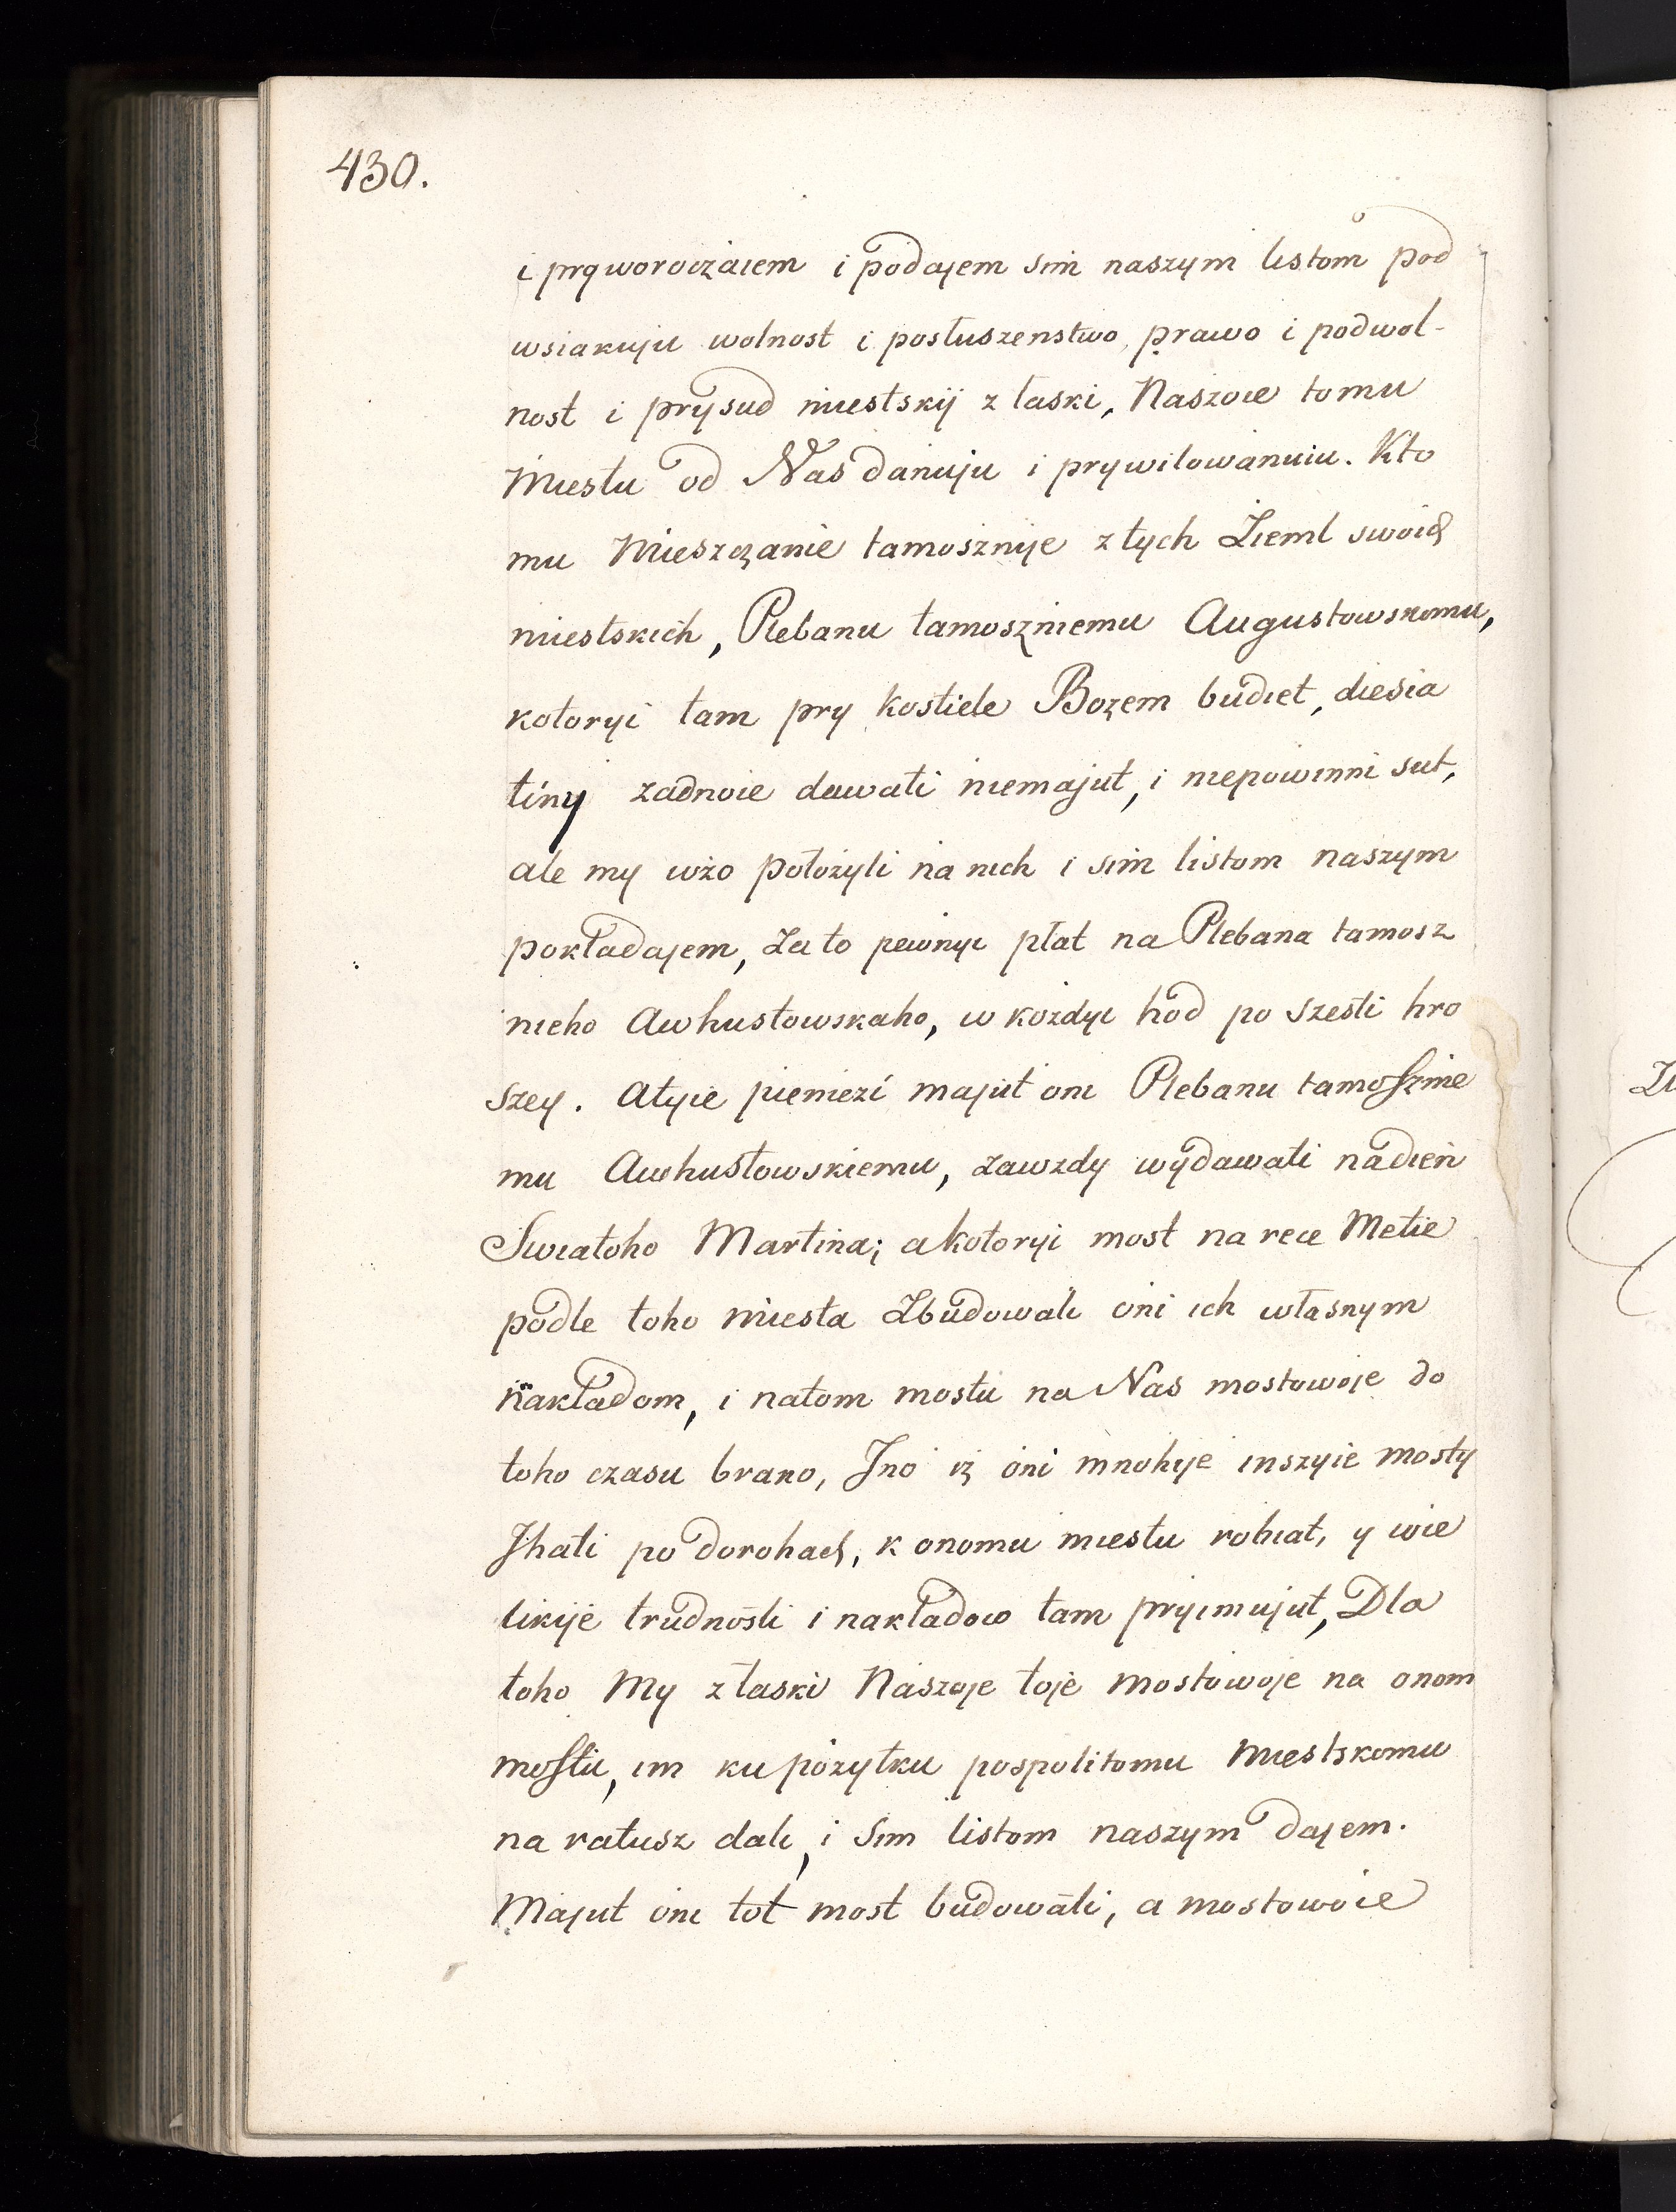 430.
i pryworoczaiem i podajem sim naszym listom pod
wsiakuju wolnost i posłuszenstwo, prawo i podwol-
nost i prysud miestskij z łaski, Naszoie tomu
Miestu od Nas danuju i prywilowanuiu. Kto
mu Mieszczanie tamosznije z tych Zieml swoich
miestskich, Plebanu tamoszniemu Augustowskomu,
kotoryi tam pry kostiele Bozem budiet, diesia
tiny zadnoie dawati niemajut, i niepowinni sut,
ale my wżo położyli na nich i sim listom naszym
pokładajem, za to pewnyi płat na Plebana tamosz
nieho Awhustowskaho, w kożdyi hod po szesti hro
szey. Atyie pieniezi majut oni Plebanu tamosznie
mu Awhustowskiemu, zawzdy wydawati nadień
Swiatoho Martina; a kotoryi most na rece Metie
podle toho miesta Zbudowali oni ich własnym
nakładom, i natom mostu na Nas mostowoje do
toho czasu brano, Jno iz oni mnohije inszyie mosty
Jhati po dorohach, k onomu miestu robiat, y wie
likije trudnosti i nakładow tam pryimujut, Dla
toho My z łaski Naszoje toje mostowoje na onom
mostu, im ku pożytku pospolitomu Miestskomu
na ratusz dali, i sim listom naszym dajem.
Majut oni tot most budowati, a mostowoie